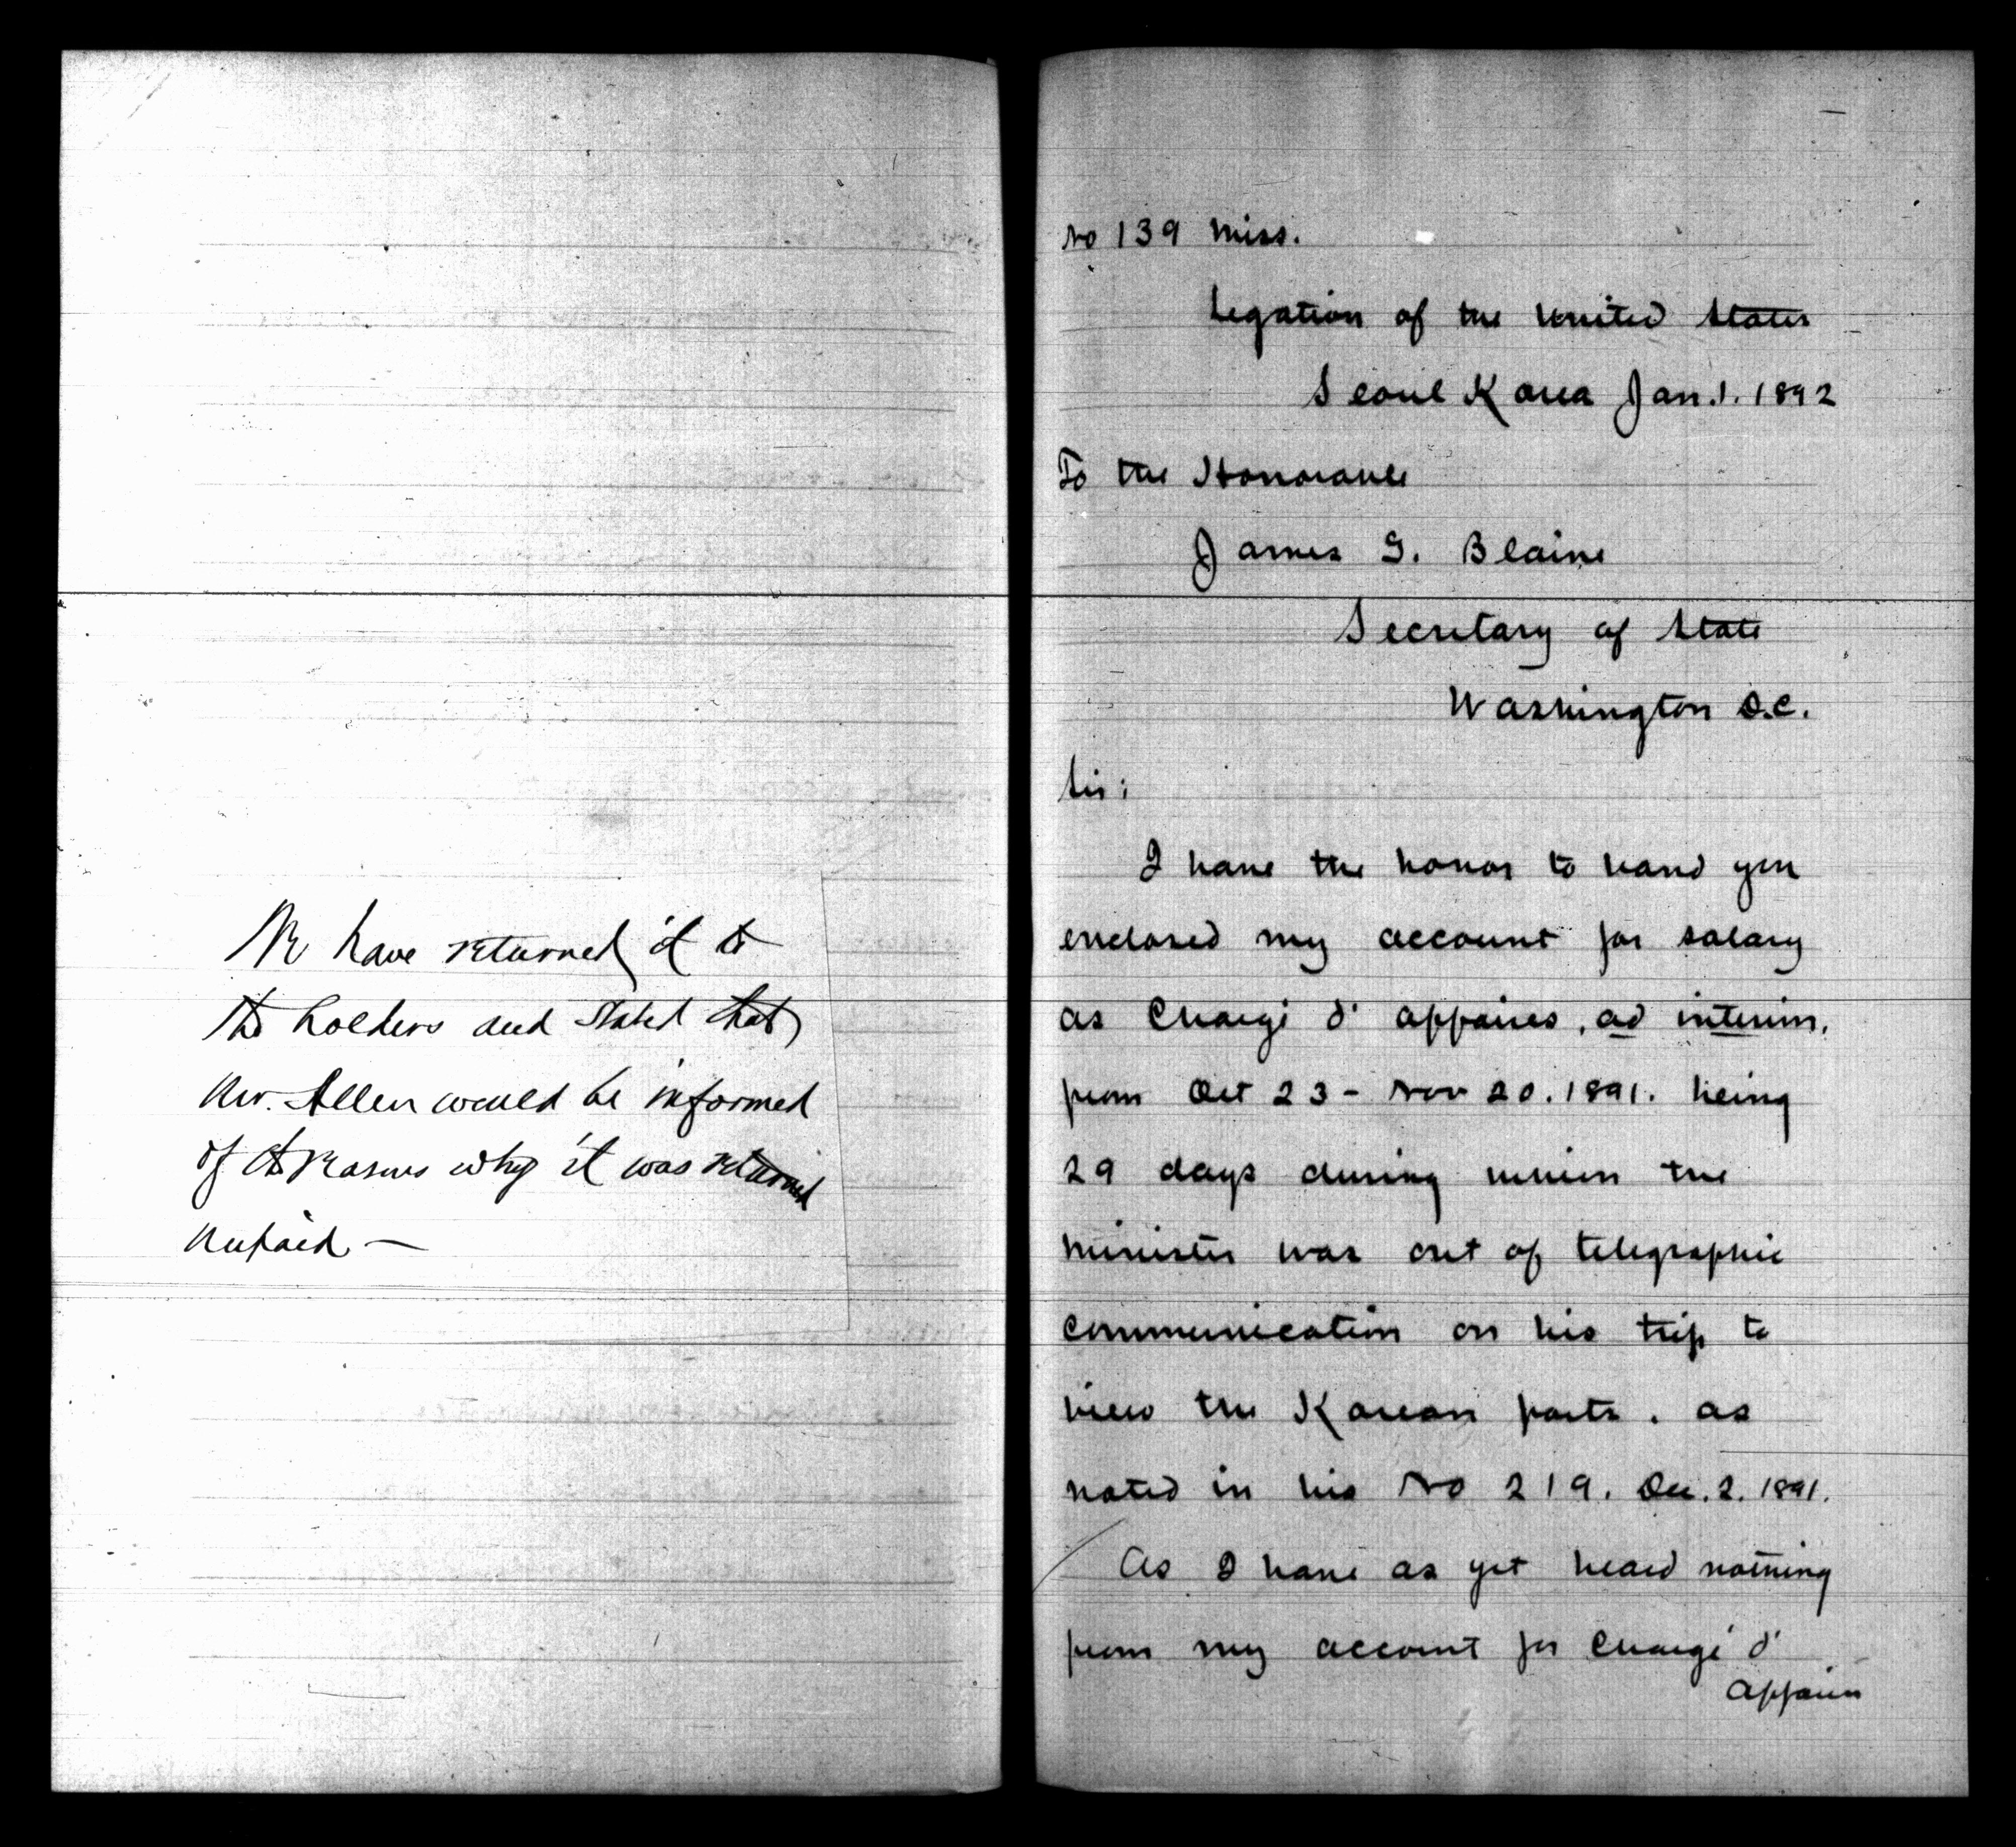 We have returned it to
the holders and stated that
Mr. Allen would be informed
of the reasons why it was returned
unpaid —
No 139 Miss.
Legation of the United States
Seoul Korea Jan. 1. 1892
To the Honorable
James G. Blaine
Secretary of State
Washington D.C.
Sir:
I have the honor to hand you
enclosed my account for salary
as Chargé d' affaires, ad interim,
from Oct 23 - Nov 20. 1891. being
29 days during which the
Minister was out of telegraphic
communication on his trip to
view the Korean ports. as
noted in his No 219. Dec. 2. 1891.
As I have as yet heard nothing
from my account for Chargé d'
Affaires